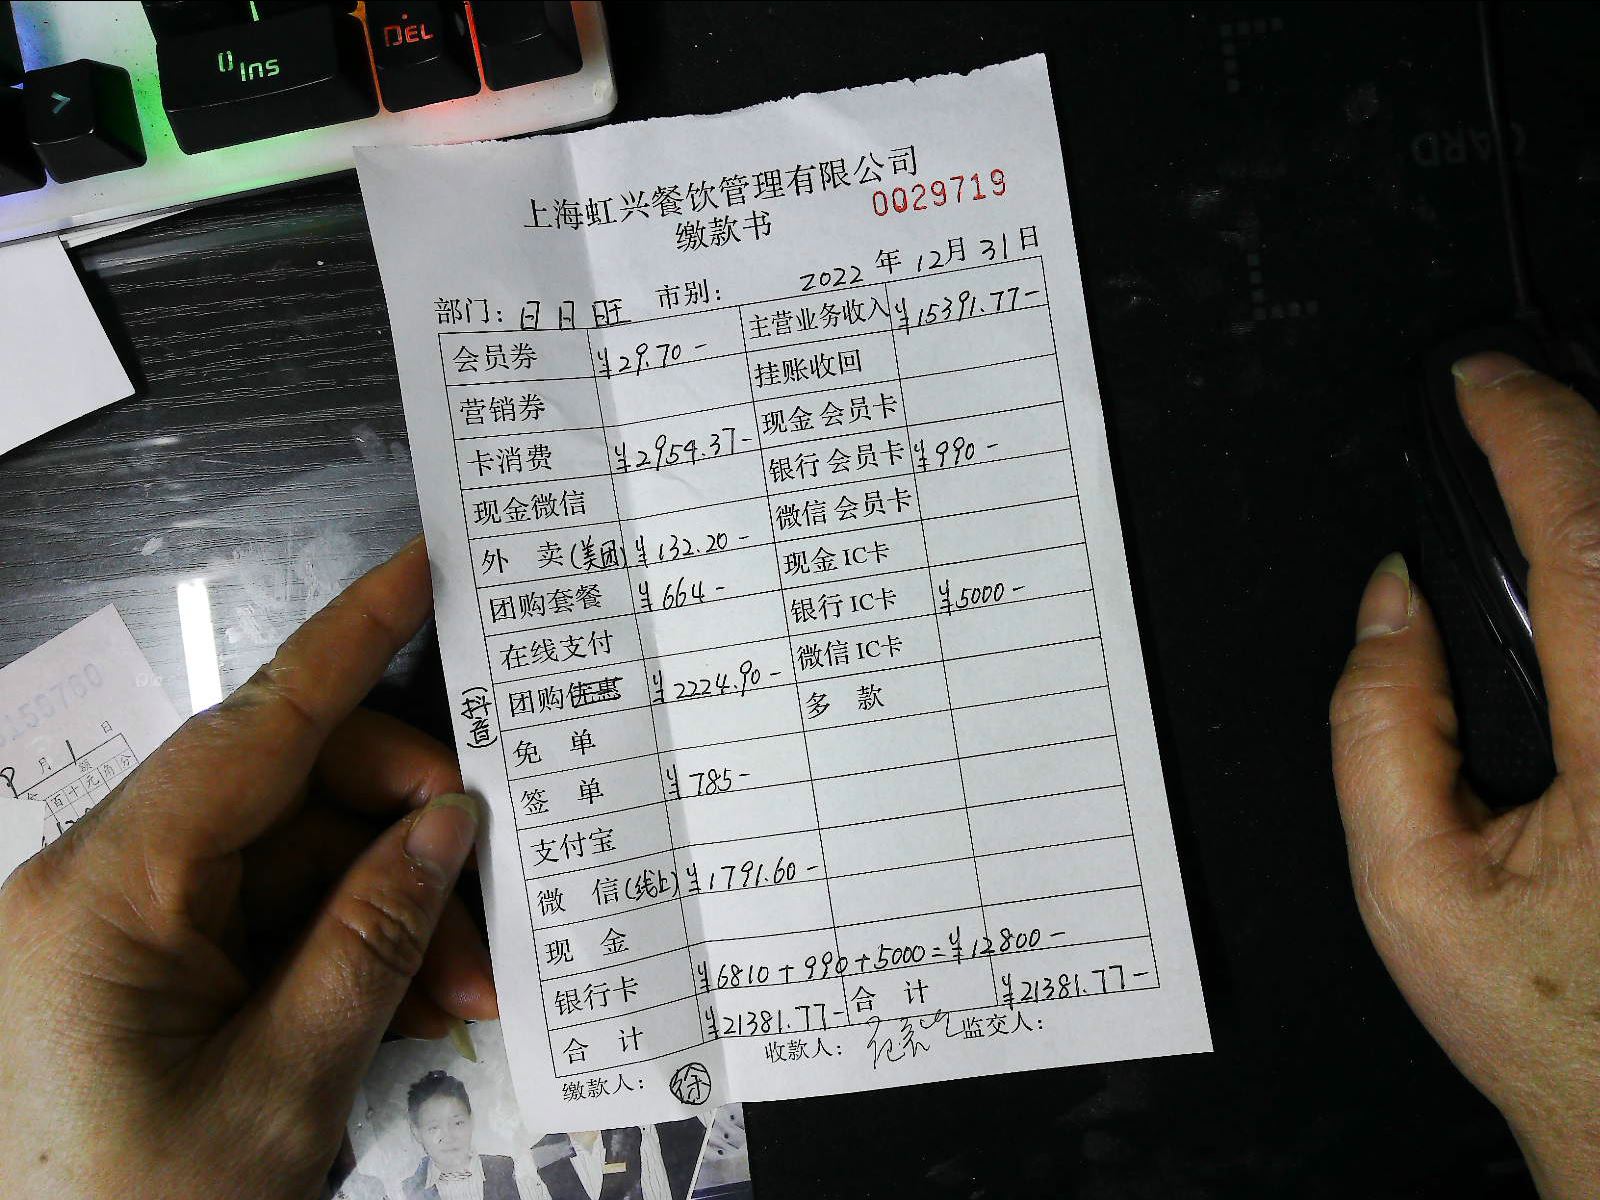 0 Ins
DEL
上海虹兴餐饮管理有限公司
缴款书
0029719
部门：日日旺 市别： 2022 年 12 月 31 日
会员券 ¥29.70- 主营业务收入 ¥15391.77-
营销券 挂账收回
卡消费 ¥2954.37- 现金 会员卡
现金微信 银行 会员卡 ¥990-
外 卖(美团) ¥132.20- 微信 会员卡
团购套餐 ¥664- 现金 IC卡
在线支付 银行 IC卡 ¥5000-
(抖音) 团购优惠 ¥2224.90- 微信 IC卡
免 单 多 款
签 单 ¥785-
支付宝
微 信(线上) ¥1791.60-
现 金
银行卡 ¥6810+990+5000=¥12800-
合 计 ¥21381.77- 合 计 ¥21381.77-
缴款人： 徐 收款人： 监交人：
155760
月 1 日
额
百 十 元 角 分